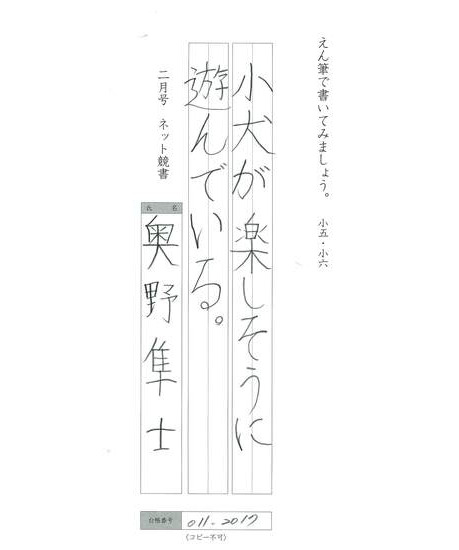 えん筆で書いてみましょう。 小五・小六
小犬が楽しそうに
遊んでいる。
二月号 ネット競書
氏名
奥野隼士
台帳番号 011-2017
(コピー不可)